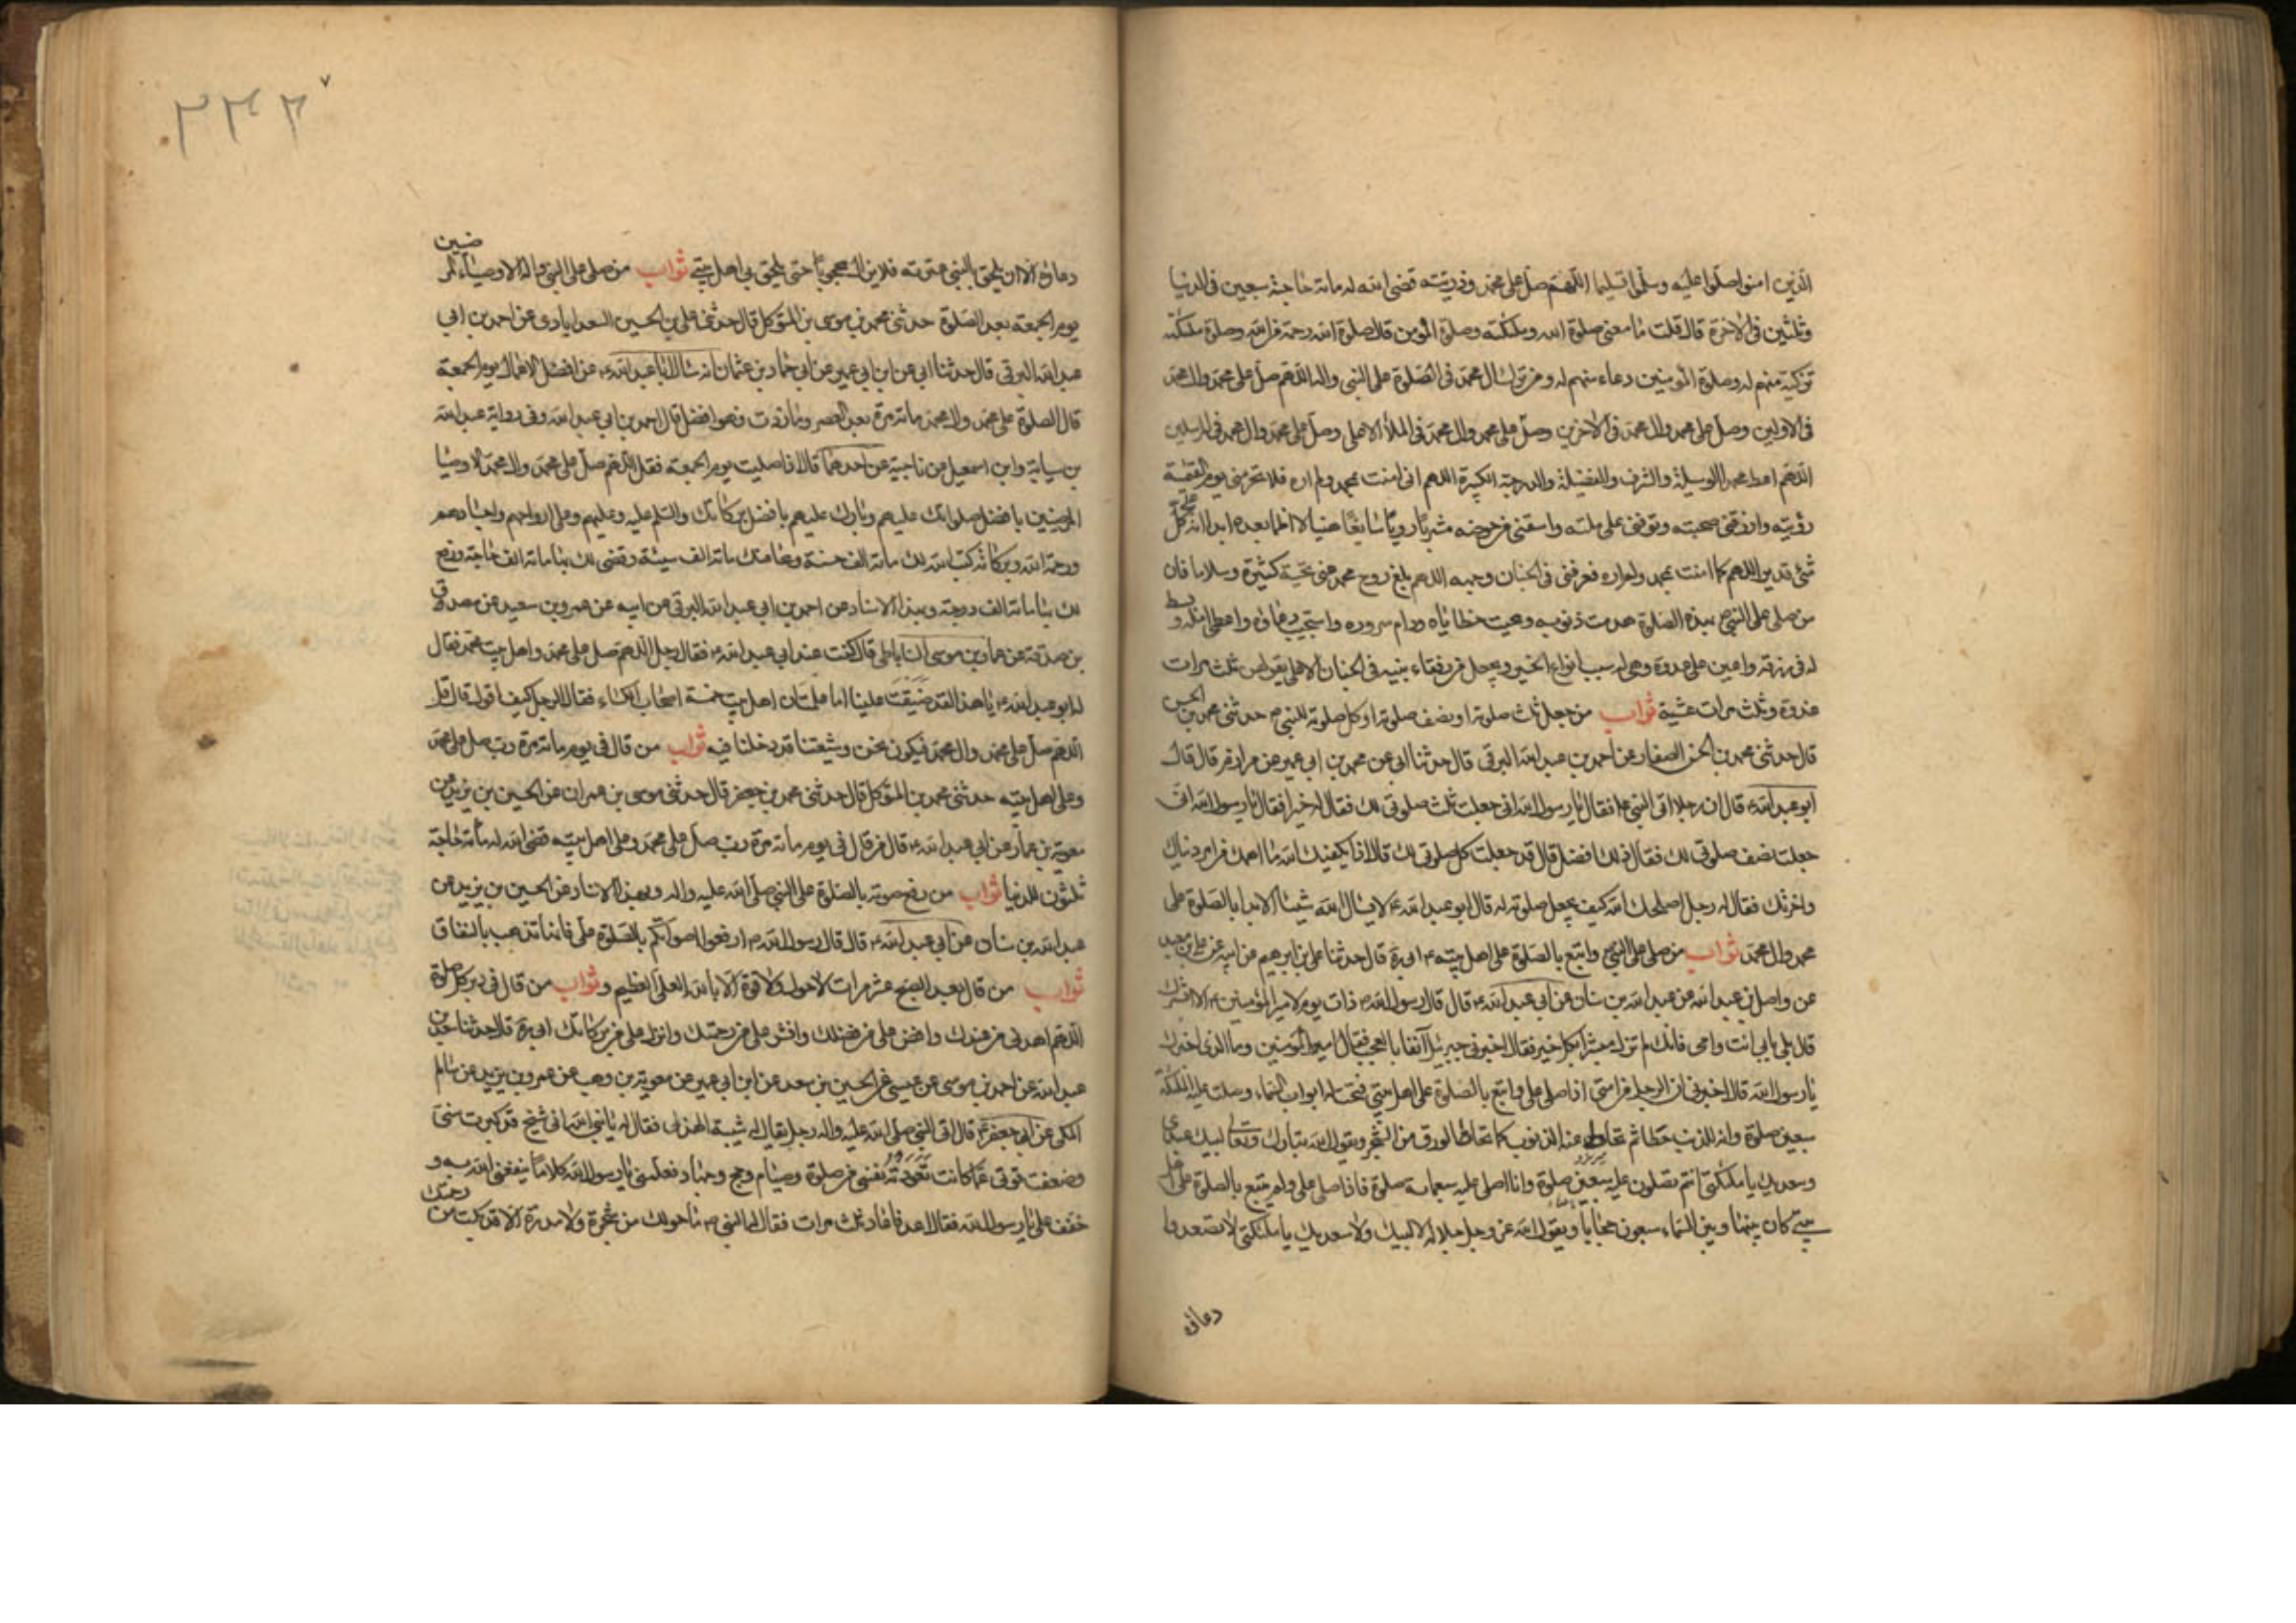 الذين امنوا صلوا عليه وسلموا تسليما اللهم صل على محمد وذريته قضى الله له مائة حاجة سبعين فى الدنيا
وثلثين فى الاخرة قال قلت ما معنى صلوة الله وملئكته وصلوة المؤمن قال صلوة الله رحمة من الله وصلوة ملئكته
تزكية منهم له وصلوة المؤمنين دعاء منهم له ومن سر ال محمد فى الصلوة على النبى واله اللهم صل على محمد وال محمد
فى الاولين وصل على محمد وال محمد فى الاخرين وصل على محمد وال محمد فى الملأ الاعلى وصل على محمد وال محمد فى المرسلين
اللهم اعط محمدا الوسيلة والشرف والفضيلة والدرجة الكبيرة اللهم انى امنت بمحمد ولم اره فلا تحرمنى يوم القيمة
رؤيته وارزقنى صحبته وتوفنى على ملته واسقنى من حوضه مشربا رويا سايغا هنيا لا اظما بعده ابدا انك على كل
شئ قدير اللهم كما امنت بمحمد ولم اره فعرفنى فى الجنان وجهه اللهم بلغ روح محمد عنى تحية كثيرة وسلاما فان
من صلى على النبى ص بهذه الصلوة هدمت ذنوبه ومحيت خطاياه ودام سروره واستجيب دعاؤه واعطى امله وبسط
له فى رزقه واعين على عدوه وهى له سبب انواع الخير ويجعل من رفقاء نبيه فى الجنان الاعلى يقولهن ثلث مرات
غدوة وثلث مرات عشية ثواب من جعل ثلث صلوته او نصف صلوته او كل صلوته للنبى ص حدثنى محمد بن الحسن
قال حدثنى محمد بن الحسن الصفار عن احمد بن عبد الله البرقى قال حدثنا ابى عن محمد بن ابى عمير عن مرازم قال قال
ابو عبد الله ع قال ان رجلا اتى النبى ص فقال يا رسول الله انى جعلت ثلث صلوتى لك فقال له خيرا فقال يا رسول الله انى
جعلت نصف صلوتى لك فقال ذلك افضل قال قد جعلت كل صلوتى لك قال اذا يكفيك الله ما اهمك من امر دنياك
واخرتك فقال له رجل اصلحك الله كيف يجعل صلوته له قال ابو عبد الله ع لا يسال الله شيئا الا بدا بالصلوة على
محمد وال محمد ثواب من صلى على النبى ص واتبع بالصلوة على اهل بيته ع ابى ره قال حدثنا على بن ابراهيم عن ابيه عن على بن معبد
عن واصل بن عبد الله عن عبد الله بن سنان عن ابى عبد الله ع قال قال رسول الله ص ذات يوم لامير المؤمنين ع الا ابشرك
قال بلى بابى انت وامى فانك لم تزل مبشرا بكل خير فقال اخبرنى جبرئيل آنفا بالعجب فقال امير المؤمنين وما الذى اخبرك
يا رسول الله قال اخبرنى ان الرجل من امتى اذا صلى على واتبع بالصلوة على اهل بيتى فتحت له ابواب السماء وصلت عليه الملئكة
سبعين صلوة وانه للذنب حطا ثم تحاط عنه الذنوب كما تحاط الورق من الشجر ويقول الله تبارك وتعالى لبيك عبدى
وسعديك يا ملئكتى انتم تصلون عليه سبعين صلوة وانا اصلى عليه سبعمائة صلوة فاذا صلى على ولم يتبع بالصلوة على اهل
بيتى كان بينها وبين السماء سبعون حجابا ويقول الله عز وجل جلاله لا لبيك ولا سعديك يا ملئكتى لا تصعدوا
دعاؤه
٢٣٢
دعاؤه الا ان يلحق بالنبى عترته فلا يزال محجوبا حتى يلحق بى اهل بيتى ثواب من صلى على النبى واله الاوصياء المرضيين
يوم الجمعة بعد الصلوة حدثنى محمد بن موسى بن المتوكل قال حدثنى على بن الحسين السعدابادى عن احمد بن ابى
عبد الله البرقى قال حدثنا ابى عن ابن ابى عمير عن ابى حماد بن عثمان انه سال ابا عبد الله ع عن افضل الاعمال يوم الجمعة
قال الصلوة على محمد وال محمد مائة مرة بعد العصر وما زدت فهو افضل قال احمد بن ابى عبد الله وفى رواية عبد الله
بن سيابة وابن اسمعيل عن ناجية عن احدهما قال اذا صليت يوم الجمعة فقل اللهم صل على محمد وال محمد الاوصيا
المرضيين بافضل صلواتك عليهم وبارك عليهم بافضل بركاتك والسلم عليه وعليهم وعلى ارواحهم واجسادهم
ورحمة الله وبركاته كتب الله لك مائة الف حسنة ومحا عنك مائة الف سيئة وقضى لك بها مائة الف حاجة ورفع
لك بها مائة الف درجة وبهذا الاسناد عن احمد بن ابى عبد الله البرقى عن ابيه عن عمرو بن سعيد عن مصدق
بن صدقة عن عمار بن موسى الساباطى قال كنت عند ابى عبد الله ع فقال رجل اللهم صل على محمد واهل بيت محمد فقال
له ابو عبد الله ع يا هذا لقد ضيقت علينا اما علمت ان اهل بيت خمسة اصحاب الكساء فقال الرجل كيف اقول قال قل
اللهم صل على محمد وال محمد فيكون نحن وشيعتنا قد دخلنا فيه ثواب من قال فى يوم مائة مرة رب صل على محمد
وعلى اهل بيته حدثنى محمد بن المتوكل قال حدثنى محمد بن جعفر قال حدثنى موسى بن عمران عن الحسين بن يزيد عن
معوية بن عمار عن ابى عبد الله ع قال من قال فى يوم مائة مرة رب صل على محمد وعلى اهل بيته قضى الله له مائة حاجة
ثلثون للدنيا ثواب من رفع صوته بالصلوة على النبى صلى الله عليه واله وبهذا الاسناد عن الحسين بن يزيد عن
عبد الله بن سنان عن ابى عبد الله ع قال قال رسول الله ص ارفعوا اصواتكم بالصلوة على فانها تذهب بالنفاق
ثواب من قال بعد الصبح عشر مرات لا حول ولا قوة الا بالله العلى العظيم وثواب من قال فى دبر كل صلوة
اللهم اهدنى من عندك وافض على من فضلك وانشر على من رحمتك وانزل على من بركاتك ابى ره قال حدثنا سعد بن
عبد الله عن احمد بن موسى عن عيسى عن الحسين بن سعد عن ابن ابى عمير عن معوية بن وهب عن عمرو بن يزيد عن سالم
المكى عن ابى جعفر ع قال اتى النبى صلى الله عليه واله رجل يقال له شيبة الهذلى فقال له يا نبى الله انى شيخ قد كبرت سنى
وضعفت قوتى عما كانت تعودته نفسى من صلوة وصيام وحج وجهاد فعلمنى يا رسول الله كلاما ينفعنى الله به و
خفف على يا رسول الله فقال اعد فاعاد ثلث مرات فقال له النبى ص ما حولك من شجرة ولا مدرة الا قد بكت من رحمتك